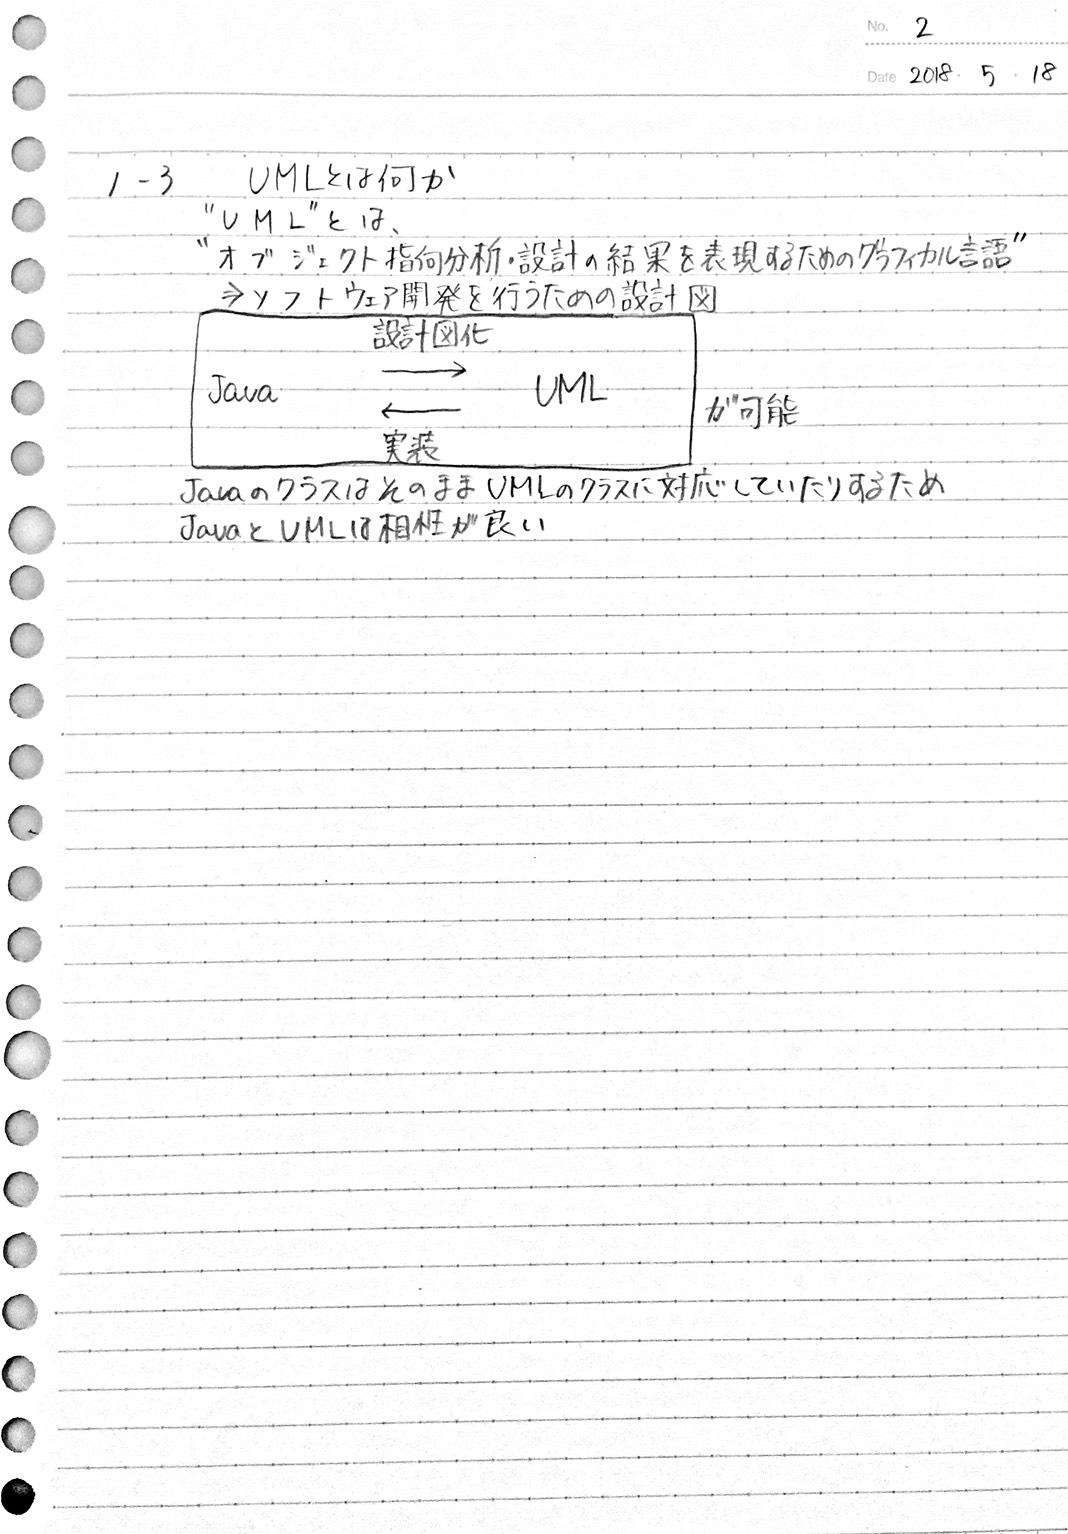 No. 2
Date 2018・5・18
1-3 UMLとは何か
"UML"とは、
"オブジェクト指向分析・設計の結果を表現するためのグラフィカル言語"
⇒ソフトウェア開発を行うための設計図
設計図化
→
Java UML
←
が可能
実装
JavaのクラスはそのままUMLのクラスに対応していたりするため
JavaとUMLは相性が良い